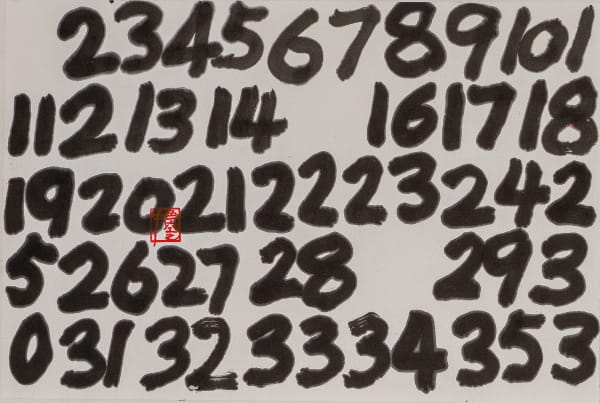 2345678910 1
1121314 161718
1920212223242
5262728 293
031323334353